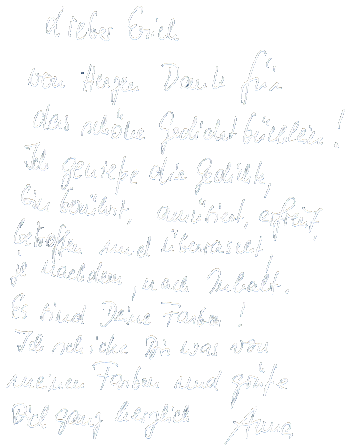 Lieber Erich
von Herzen Dank für
das schöne Gedichtbüchlein!
Ich genieße die Gedichte,
bin berührt, amüsiert, erfreut,
betroffen und überrascht,
je nachdem, nach Inhalt.
Es sind Deine Farben!
Ich schicke Dir was von
meinen Farben und grüße
Dich ganz herzlich
Anna